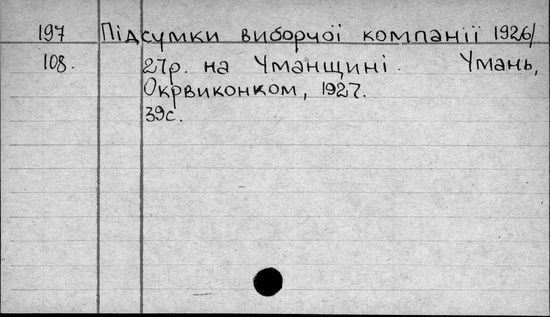 197 Підсумки виборчої компанії 1926/
108. 27р. на Уманщині. Умань,
Окрвиконком, 1927.
39с.